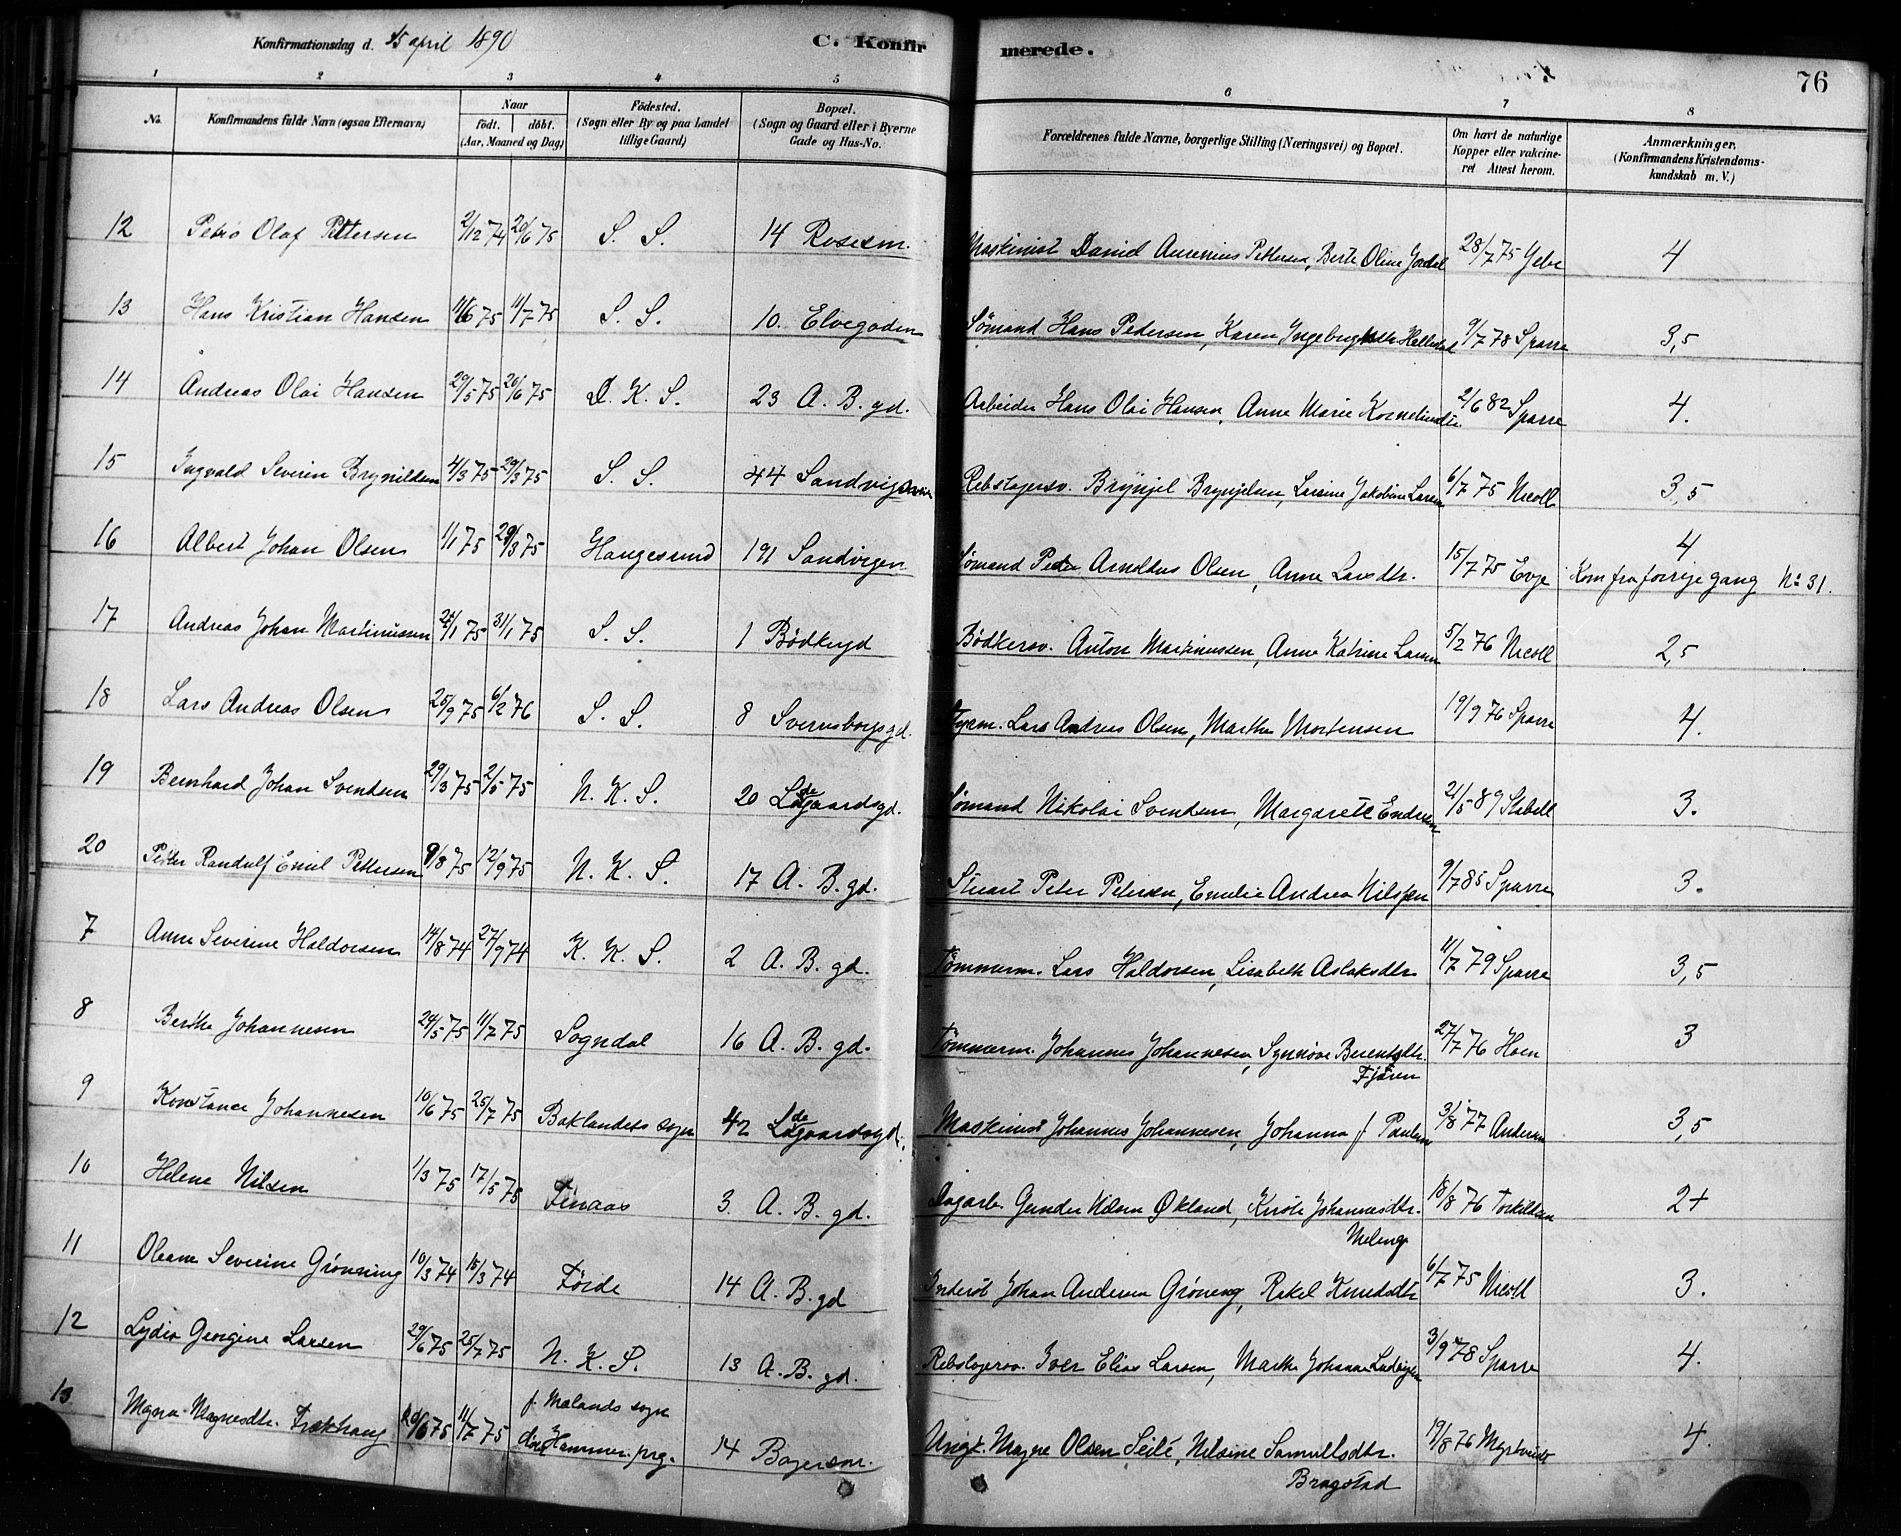 Konfirmationsdag d. 15 april 1890 C. Konfir merede. 76
1 2 3 4 5 6 7 8
No. Konfirmandens fulde Navn (ogsaa Efternavn) Naar födt. döbt. (Aar, Maaned og Dag) Födested. (Sogn eller By og paa Landet tillige Gaard) Bopæl. (Sogn og Gaard eller i Byerne Gade og Hus-No. Forældrenes fulde Navne, borgerlige Stilling (Næringsvei) og Bopæl. Om havt de naturlige Kopper eller vakcineret Attest herom. Anmærkninger. (Konfirmandens Kristendomskundskab m. V.)
12 Petro Olaf Pettersen 2/12 74 20/6 75 S. S. 14 Rosesm. Maskinist Daniel Aurenius Pettersen, Berte Oline Jordal 28/7 75 Yebe 4
13 Hans Kristian Hansen 11/6 75 11/7 75 S. S. 10. Elvegaden Sømand Hans Pedersen, Karen 9/7 78 Sparre 3,5
14 Andreas Olai Hansen 29/5 75 20/6 75 D. K. S. 23 A. B. gd. Arbeider Hans Olai Hansen, Anne Marie Korneliusdtr. 2/6 82 Sparre 4.
15 Ingvald Severin Brynildsen 4/3 75 29/3 75 S. S. 44 Rebslagersv. Brynjel Brynjelsen, Larsine Jakobine Larsen 6/7 75 Nicoll 3,5
16 Albert Johan Olsen 1/1 75 29/3 75 Haugesund 191 Sandvigen Sømand Peder Arnoldus Olsen, Anne Larsdtr. 15/7 75 Evje 4
Kom fra forrige gang No 31.
17 Andreas Johan Martinussen 22/1 75 31/1 75 S. S. 1 Bødkergd Bødkersv. Anton Martinussen, Anne Katrine Larsen 5/2 76 Nicoll 2,5
18 Lars Andreas Olsen 25/9 75 6/2 76 S. S. 8 Sverresborgsgd. Styrm. Lars Andreas Olsen, Marthe Mortensen 19/9 76 Sparre 4.
19 Bernhard Johan Svendsen 29/3 75 2/5 75 N. K. S. 20 Ladegaardsgd. Sømand Nikolai Svendsen, Margarete Endresen 21/5 89 Stabell 3.
20 Petter Randulf Emil Pettersen 9/8 75 12/9 75 N. K. S. 17 A. B. gd. Stuart Peter Petersen, Emelie Andrea Nilssen 9/7 85 Sparre 3.
7 Anne Severine Haldorsen 14/8 74 27/9 74 K. K. S. 2 A. B. gd. Tømmerm. Lars Haldorsen, Lisabeth Aslaksdtr 11/7 79 Sparre 3,5
8 Berthe Johannesen 24/5 75 11/7 75 Sogndal 16 A. B. gd. Tømmerm. Johannes Johannesen, Synnøve Berentsdtr. 27/7 76 Hoen 3
Fjæren
9 Konstance Johannesen 10/6 75 25/7 75 Baklandets sogn 42 Ladegaardsgd. Maskinist Johannes Johannesen, Johanna f Paulsen 3/8 77 Andersen 3,5
10 Helene Nilsen 1/3 75 17/5 75 Finaas 3. A. B. gd. Dagarb. Gunder Nilsen Økland, Kirsti Johannesdtr. 18/8 76 Torkildsen 2+
Meling
11 Oleane Severine Grønning 10/3 74 15/3 74 Førde 14 A. B. gd Inderst Johan Andersen Grøneng, Rakel Knudsdtr 6/7 75 Nicoll 3.
12 Lydia Georgine Larsen 29/6 75 25/7 75 N. K. S. 13 A. B. gd. Rebslagersv. Iver Elias Larsen, Marthe Johanne Ludvigsen 3/9 78 Sparre 4.
13 Magna Magnesdtr. 20/6 75 11/7 75 f. Mælands sogn
døbt Hammer prg. 14 Bagersm. Ungk. Magne Olsen Seile, Nilsine Samuelsdtr. 19/8 76 4.
Bragstad